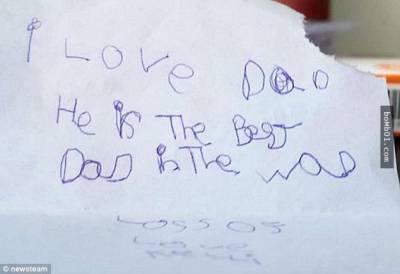 I Love Dad
He is The Best
Dad in The wad
Loss os
Love
boMb01.com
© newsteam